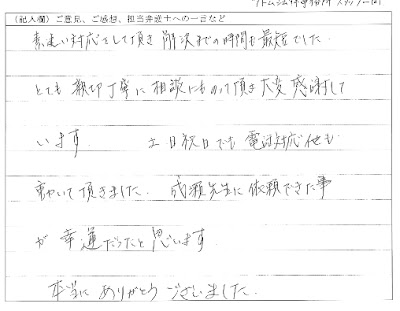 アトム法律事務所 スタッフ一同
(記入欄) ご意見、ご感想、担当弁護士への一言など
素速い対応をして頂き 解決までの時間も最短でした
とても 親切丁寧に 相談にものって頂き 大変 感謝して
います 土日祝日でも 電話対応他も
動いて頂きました. 成瀬先生に 依頼できた事
が 幸運だったと 思います
本当に ありがとう ございました.